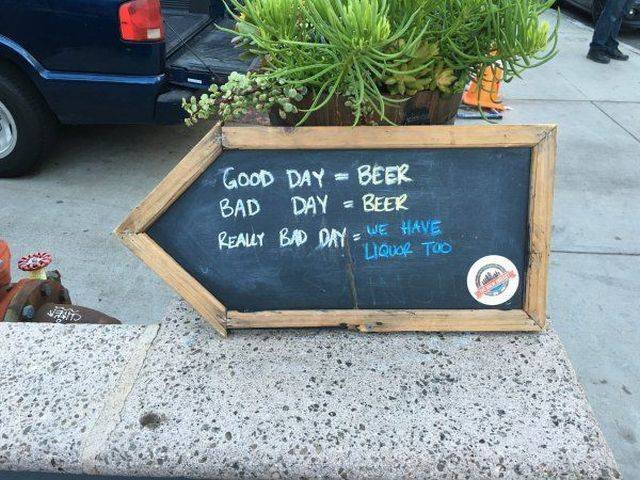 GOOD DAY = BEER
BAD DAY = BEER
REALLY BAD DAY = WE HAVE
LIQUOR TOO